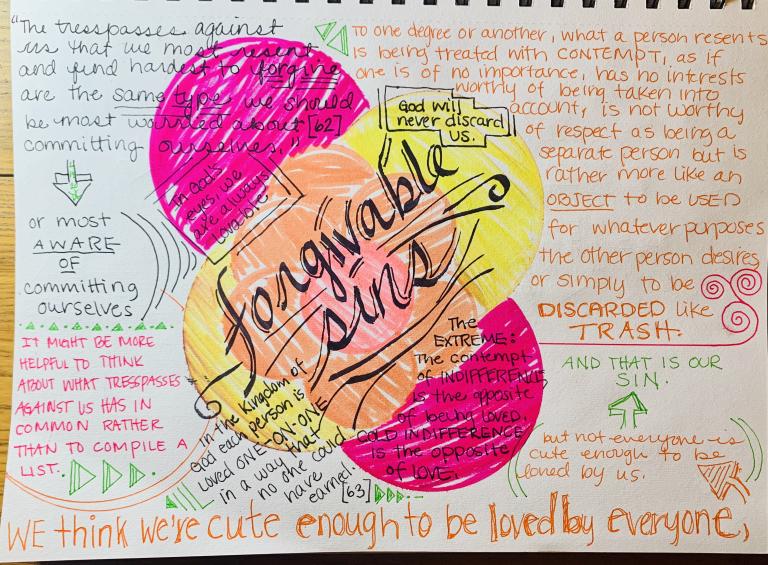 "The tresspasses against
us that we most resent
and find hardest to forgive
are the same type we should
be most worried about [62]
committing ourselves."
or most
AWARE
OF
committing
ourselves
IT MIGHT BE MORE
HELPFUL TO THINK
ABOUT WHAT TRESSPASSES
AGAINST US HAS IN
COMMON RATHER
THAN TO COMPILE A
LIST.
In God's
eyes, we
are always
lovable
God will
never discard
us.
forgivable
sins
In the Kingdom of
God each person is
loved ONE-ON-ONE
in a way that
no one could
have
earned.
[63]
The
EXTREME:
The contempt
of INDIFFERENCE
is the opposite
of being loved.
COLD INDIFFERENCE
is the opposite
of LOVE.
TO one degree or another, what a person resents
is being treated with CONTEMPT, as if
one is of no importance, has no interests
worthy of being taken into
account, is not worthy
of respect as being a
separate person but is
rather more like an
OBJECT to be USED
for whatever purposes
the other person desires
or simply to be
DISCARDED like
TRASH.
AND THAT IS OUR
SIN.
but not everyone is
cute enough to be
loved by us.
WE think we're cute enough to be loved by everyone,